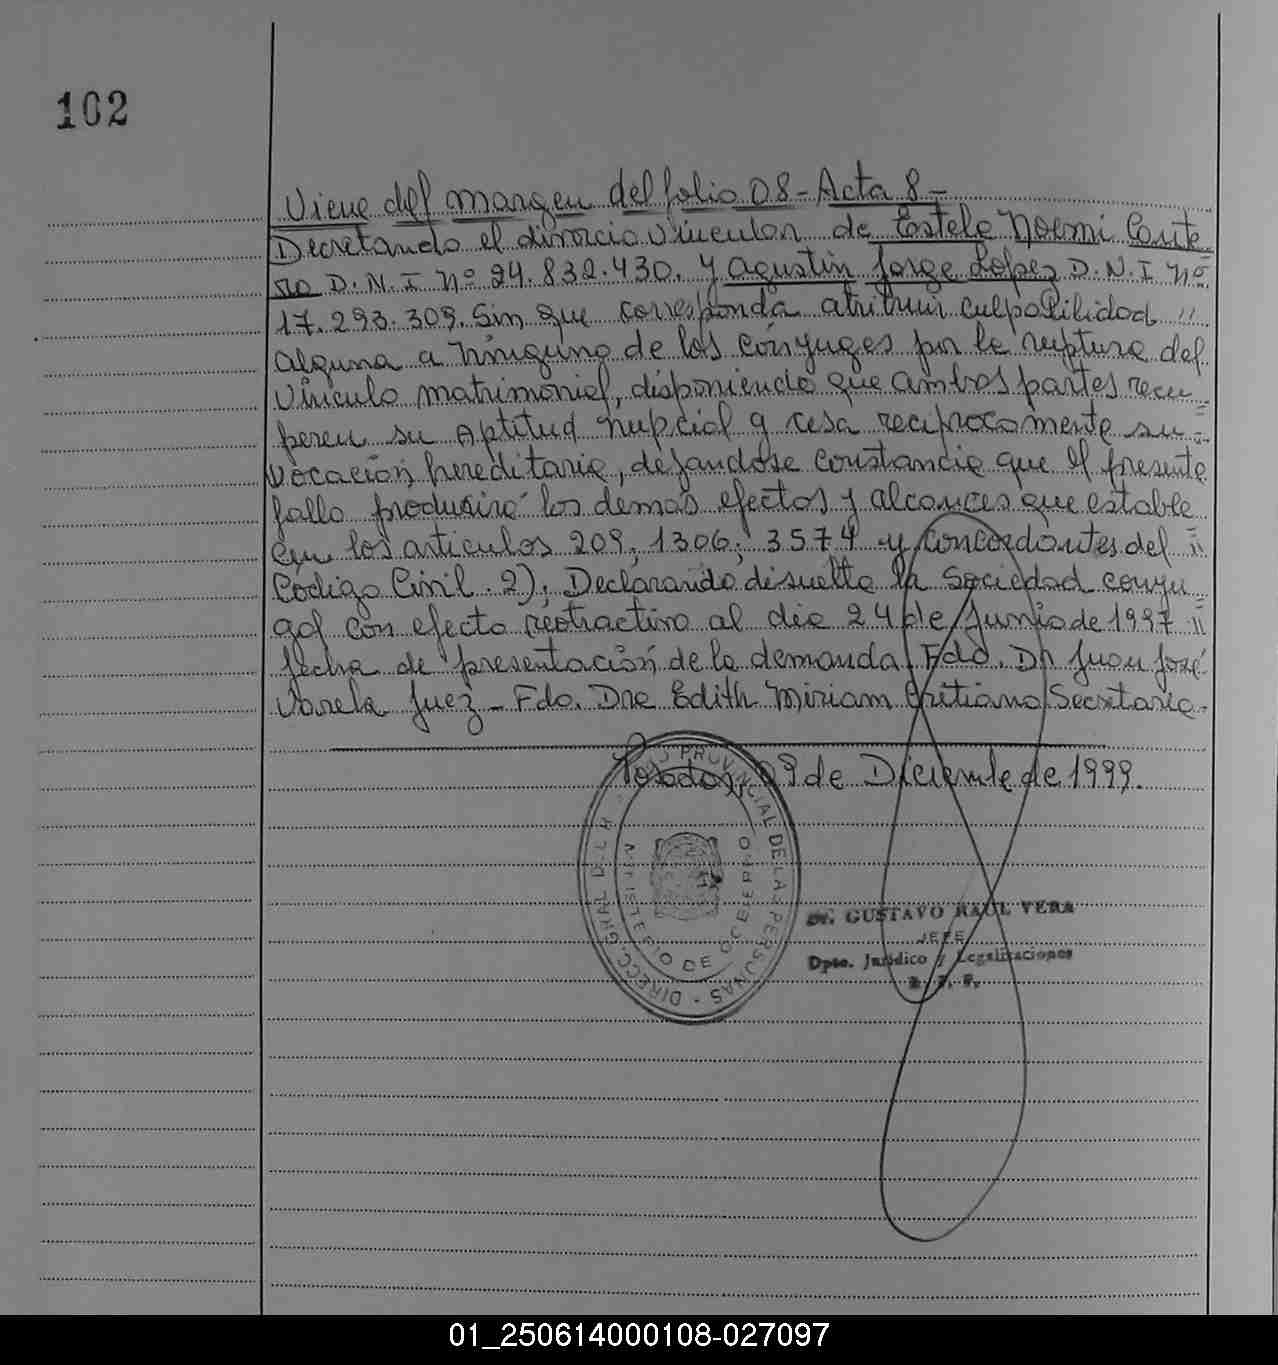 102
Viene del margen del folio 08 - Acta 8 -
Decretando el divorcio vincular de Estela Noemi Conte
ro D.N.I nº 24.832.430. y Agustin Jorge Lopez D.N.I nº
17.293.309. Sin que corresponda atribuir culpabilidad //
alguna a ninguno de los cónyuges por la ruptura del
vínculo matrimonial, disponiendo que ambos partes recu
peren su Aptitud nupcial y cesa reciprocamente su
vocación hereditaria, dejandose constancia que el presente
fallo producirá los demas efectos y alcances que estable
cen los articulos 209, 1306, 3574 y concordantes del //
Codigo Civil. 2); Declarando disuelta la Sociedad conyu
gal con efecto retroactivo al dia 24 de Junio de 1997 //
fecha de presentación de la demanda Fdo. Dr Juan José
Varela Juez - Fdo. Dra Edith Miriam Cristiano Secretaria.
Posadas, 09 de Diciembre de 1999.
PROVINCIAL DE LAS PERSONAS - DIRECC. GRAL. DEL R.
MINISTERIO DE GOBIERNO
Dr. GUSTAVO RAUL VERA
JEFE
Dpto. Jurídico y Legalizaciones
R. P. P.
01_250614000108-027097